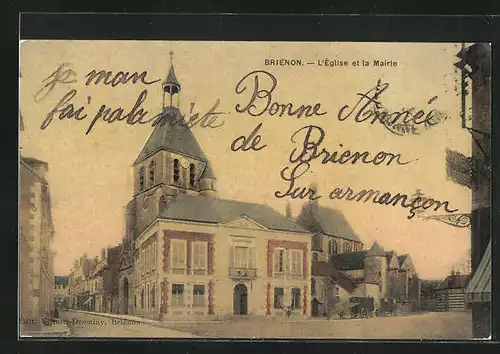 BRIENON. — L'Église et la Mairie
Bonne Année
de
Brienon
Sur armançon
je man
fai pala miete
Edit. Villard-Drominy, Brienon